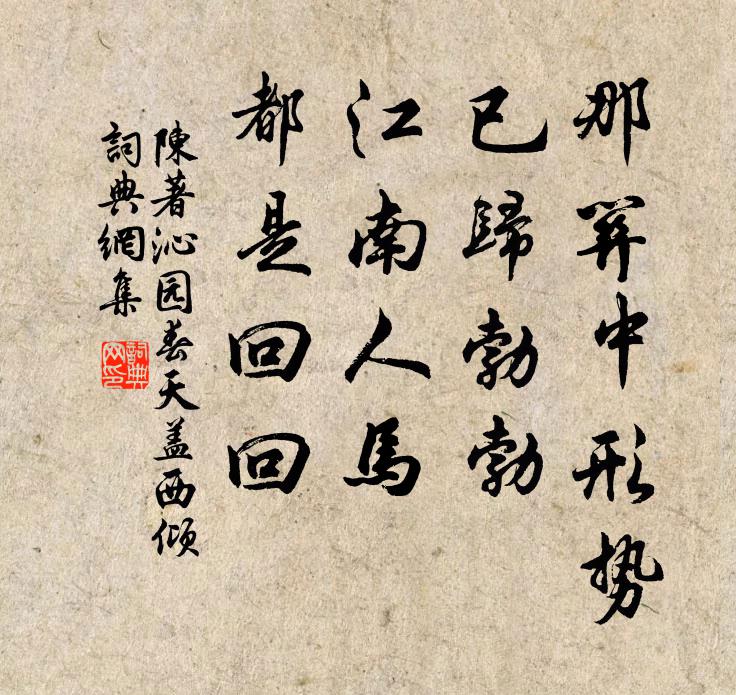 那関中形势
已歸勃勃
江南人馬
都是回回
陳著沁园春天盖西倾
詞典網集
詞典网印